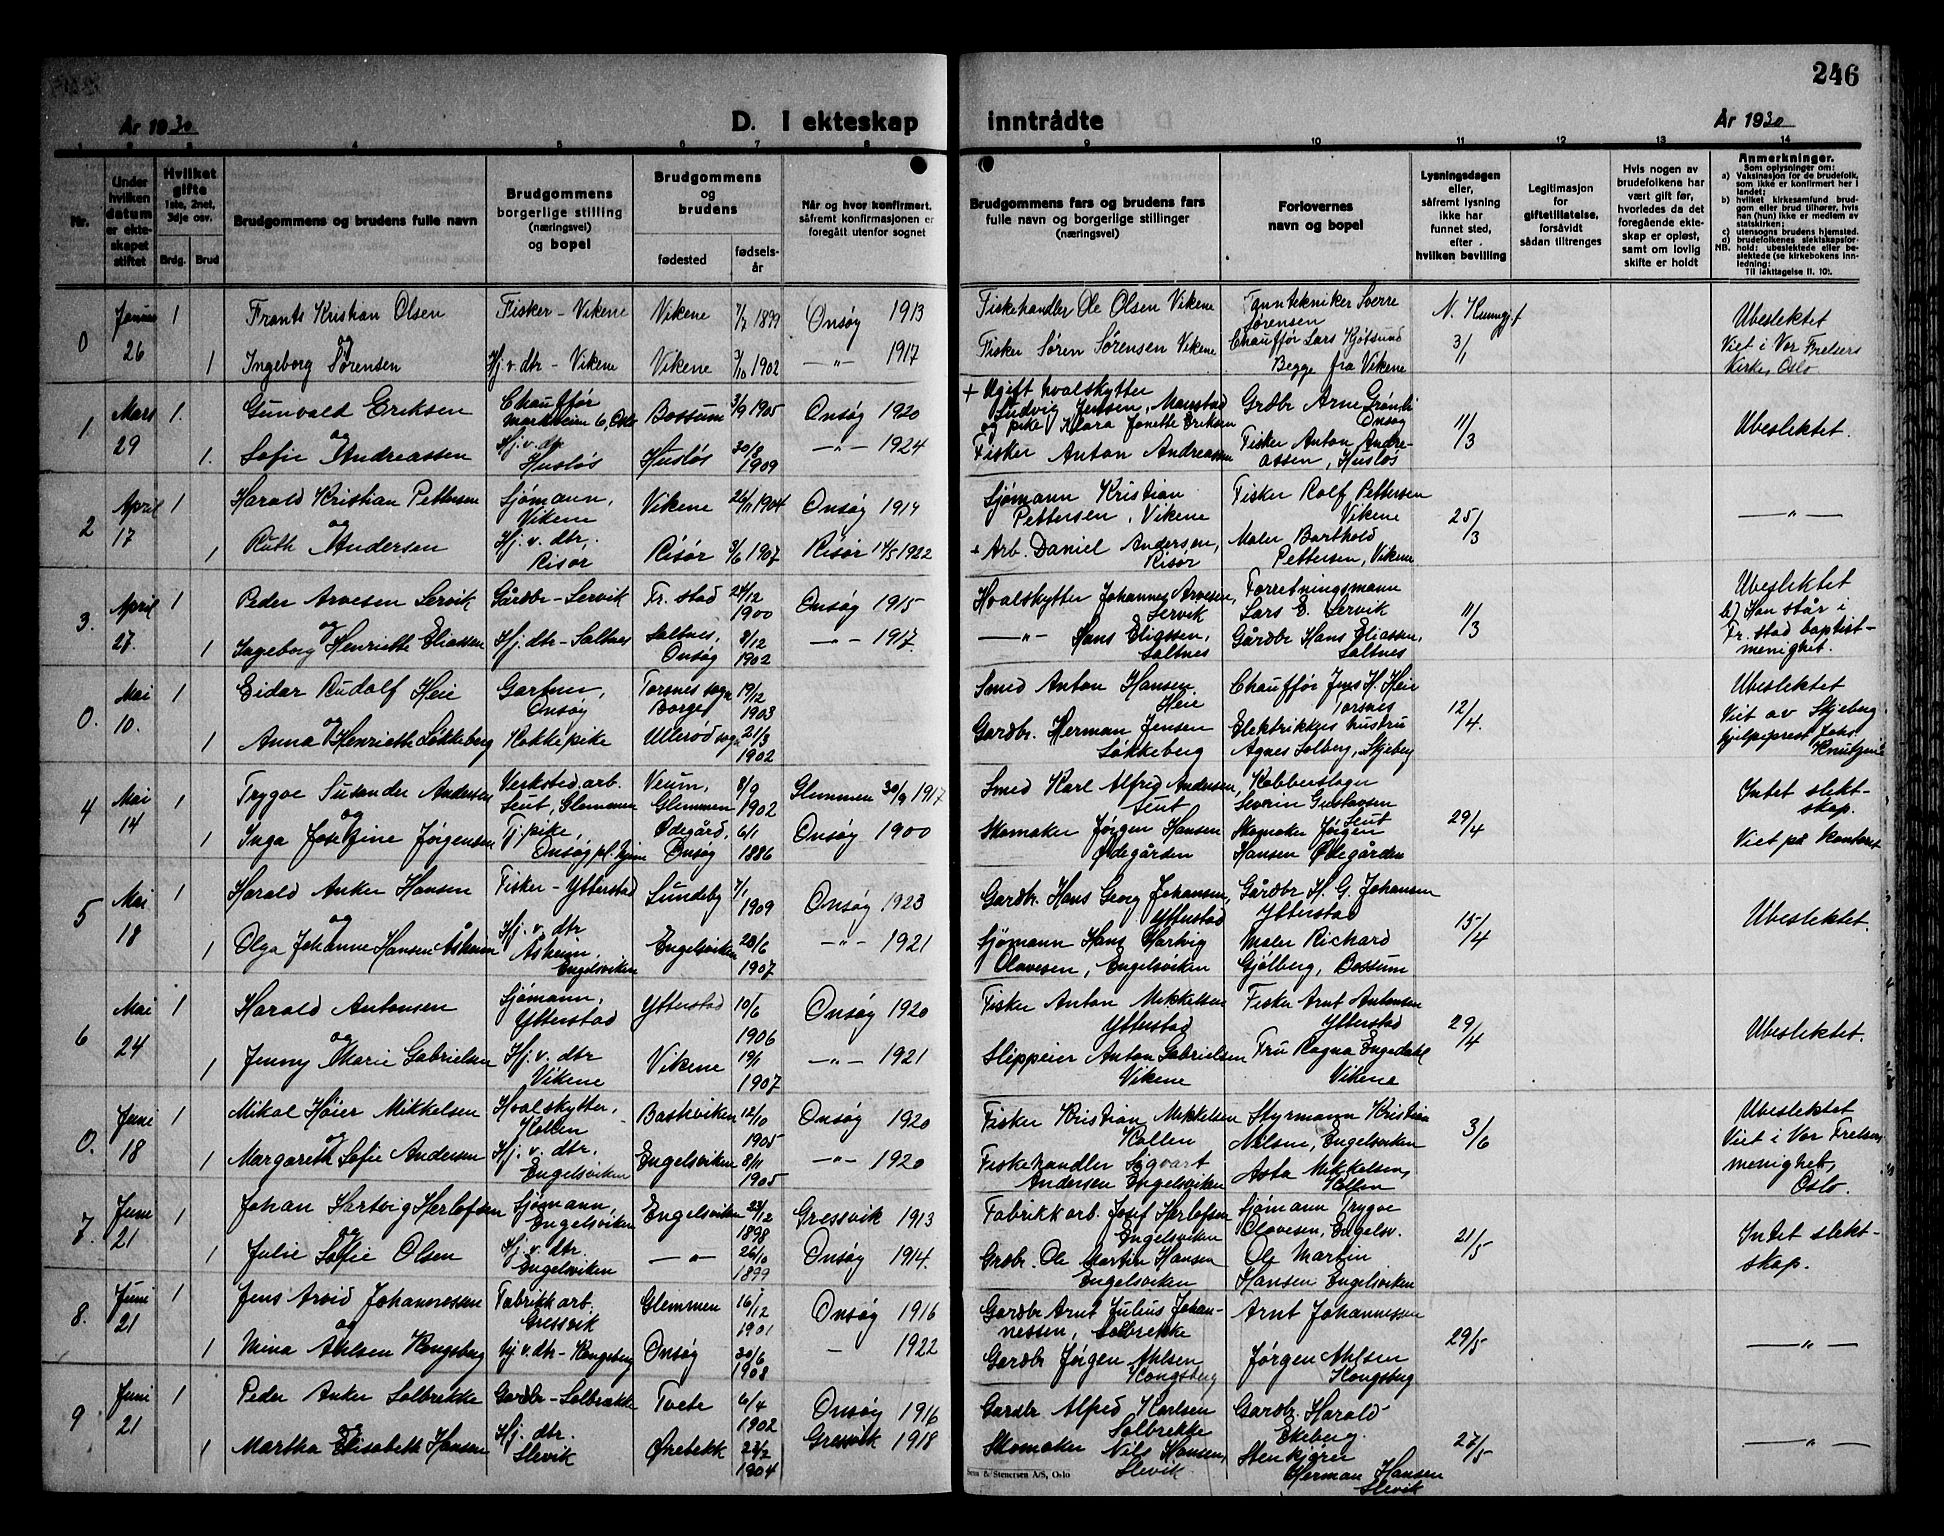 246
År 1930
D. I ekteskap inntrådte
År 1930
1 2 3 4 5 6 7 8 9 10 11 12 13 14
Nr.
Under hvilken datum er ekteskapet stiftet
Hvilket gifte 1ste, 2net, 3dje osv.
Brdg. Brud
Brudgommens og brudens fulle navn
Brudgommens borgerlige stilling (næringsvei) og bopel
Brudgommens og brudens
fødested
fødsels-år
Når og hvor konfirmert, såfremt konfirmasjonen er foregått utenfor sognet
Brudgommens fars og brudens fars fulle navn og borgerlige stillinger (næringsvei)
Forlovernes navn og bopel
Lysningsdagen eller, såfremt lysning ikke har funnet sted, efter hvilken bevilling
Legitimasjon for giftetillatelse, forsåvidt sådan tiltrenges
Hvis nogen av brudefolkene har vært gift før, hvorledes da det foregående ekteskap er opløst, samt om lovlig skifte er holdt
Anmerkninger.
Som oplysninger om:
a) Vaksinasjon for de brudefolk, som ikke er konfirmert her i landet;
b) hvilket kirkesamfund brudgom eller brud tilhører, hvis han (hun) ikke er medlem av statskirken;
c) utensogns brudens hjemsted.
d) brudefolkenes slektskapsforhold: ubeslektede eller beslektede (se kirkebokens innledning;
NB.
Til iakttagelse II. 10).
0 Januar 26 1 Frants Kristian Olsen Fisker - Vikene Vikene 7/7 1899 Onsøy 1913 Fiskehandler Ole Olsen Vikene Tanntekniker Sverre Sørensen 3/1 Ubeslektet
og
1 Ingeborg Sørensen Hj.v.dtr - Vikene Vikene 3/10 1902 -"- 1917 Fisker Søren Sørensen Vikene Chauffør Lars Kjølsund Begge fra Vikene Viet i Vor Frelsers Kirke, Oslo
1 Mars 29 1. Gunvald Eriksen Chauffør Markveien 6, Oslo Bossum 3/9 1905 Onsøy 1920 + Ugift hvalskytter Ludvig Jensen, og pike Klara Jonette Eriksen Grdbr Arne Onsøy 11/3 Ubeslektet.
og
1. Sofie Andreassen Hj.v.dtr Husløs Husløs 30/8 1909 -"- 1924 Fisker Anton Andreassen Fisker Anton Andreassen, Husløs
2 April 17 1 Harald Kristian Pettersen Sjømann, Vikene Vikene 26/11 1904 Onsøy 1919 Sjømann Kristian Pettersen, Vikene Fisker Rolf Pettersen Vikene 25/3 -"-
og
1 Ruth Andersen Hj.v.dtr, Risør Risør 3/6 1907 Risør 14/5 1922 + Arb. Daniel Andersen, Risør Maler Barthold Pettersen, Vikene
3. April 27. 1 Peder Arvesen Lervik Gårdbr - Lervik Fr. stad 24/12 1900 Onsøy 1915 Hvalskytter Johannes Arvesen, Lervik Forretningsmann Lars E. Lervik 11/3 Ubeslektet b) Han står i Fr. stad baptistmenighet.
og
1 Ingeborg Henriette Eliassen Hj. dtr - Saltnes Saltnes, Onsøy 8/12 1902 -"- 1917. -"- Hans Eliassen, Saltnes Gårdbr Hans Eliassen, Saltnes
0. Mai 10. 1 Eidar Rudolf Heie Gartner, Onsøy Torsnes sogn Borge 19/12 1903 Smed Anton Hansen Heie Chauffør Jens H. Heie Torsnes 12/4. Ubeslektet Viet av Skjeberg hjelpeprest Johs.
og
1 Anna Henriette Løkkeberg Kokkepike Ullerød sogn 21/3 1902 Gardbr. Herman Jensen Løkkeberg Elektrikkers hustru Agnes Solberg, Skjeberg
4 Mai 14 1 Trygve Andersen Verksted.arb. Leut, Glemmen Veum, Glemmen 8/9 1902 Glemmen 30/9 1917 Smed Karl Alfred Andersen, Leut Kobberslager Severin Gustavsen Leut 29/4 Intet slektskap.
og
1 Inga Josefine Jørgensen Tj.pike, Onsøy Ødegård, Onsøy 6/1 1886 Onsøy 1900 Skomaker Jørgen Hansen Ødegården Skomaker Jørgen Hansen Ødegården Viet på kontoret
5 Mai 18 1 Harald Anker Hansen Fisker - Ytterstad Sundeby 7/1 1909 Onsøy 1923 Gardbr. Hans Georg Johansen, Ytterstad Gårdbr H. G. Johansen Ytterstad 15/4 Ubeslektet.
og
1 Olga Johanne Hansen Åsheim Hj.v.dtr Åsheim, Engelsviken Engelsviken 28/6 1907 -"- 1921 Sjømann Hans Hartvig Olavesen, Engelsviken Maler Richard Gjølberg, Bossum
6 Mai 24 1 Harald Antonsen Sjømann, Ytterstad Ytterstad 10/6 1906 Onsøy 1920 Fisker Anton Mikkelsen Ytterstad Fisker Arnt Antonsen Ytterstad 29/4 Ubeslektet.
og
1 Jenny Marie Gabrielsen Hj.v.dtr Vikene Vikene 19/1 1907 -"- 1921 Anton Gabrielsen Vikene Fru Ragna Engedahl Vikene
0. Juni 18 1 Mikal Høier Mikkelsen Hvalskytter, Kollen Bastviken 12/10 1905 Onsøy 1920 Fisker Kristian Mikkelsen Kollen Styrmann Kristian Nilsen, Engelsviken 3/6 Ubeslektet Viet i Vor Frelsers menighet, Oslo.
og
1 Margareth Sofie Andersen Hj.v.dtr. Engelsviken Engelsviken 8/11 1905 -"- 1920 Fiskehandler Sigvart Andersen Engelsviken Asta Mikkelsen, Kollen
7. Juni 21 1 Johan Hartvig Herlofsen Sjømann, Engelsviken Engelsviken 23/12 1898 Gressvik 1913 Fabrikkarb. Josef Herlofsen Engelsviken Sjømann Trygve Olavesen, Engelsv. 21/5 Intet slektskap.
og
1 Julie Sofie Olsen Hj.v.dtr. Engelsviken -"- 26/10 1899 Onsøy 1914. Grdbr. Ole Martin Hansen Engelsviken Ole Martin Hansen Engelsviken
8. Juni 21 1 Jens Arvid Johannessen Fabrikkarb. Gressvik Glemmen 16/12 1901 Onsøy 1916 Gardbr Arnt Julius Johannessen, Solbrekke Arnt Johannessen 29/5 -"-
og
1 Mina Nilsen Kongsberg hj.v.dtr - Kongsberg Onsøy 30/6 1908 - 1922 Gardbr Jørgen Nilsen Kongsberg Jørgen Nilsen Kongsberg
9 Juni 21 1 Peder Anker Solbrekke Gardbr - Solbrekke Tvete 6/4 1902 Onsøy 1916 Gardbr Alfred Karlsen Solbrekke Gardbr. Harald Ekeberg. 27/5 -"-
og
1 Martha Elisabeth Hansen Hj. dtr. Slevik Ørebekk 23/2 1904 Gressvik 1918 Skomaker Nils Hansen, Slevik Stenkjører Herman Hansen Slevik
& Stenersen A/S, Oslo